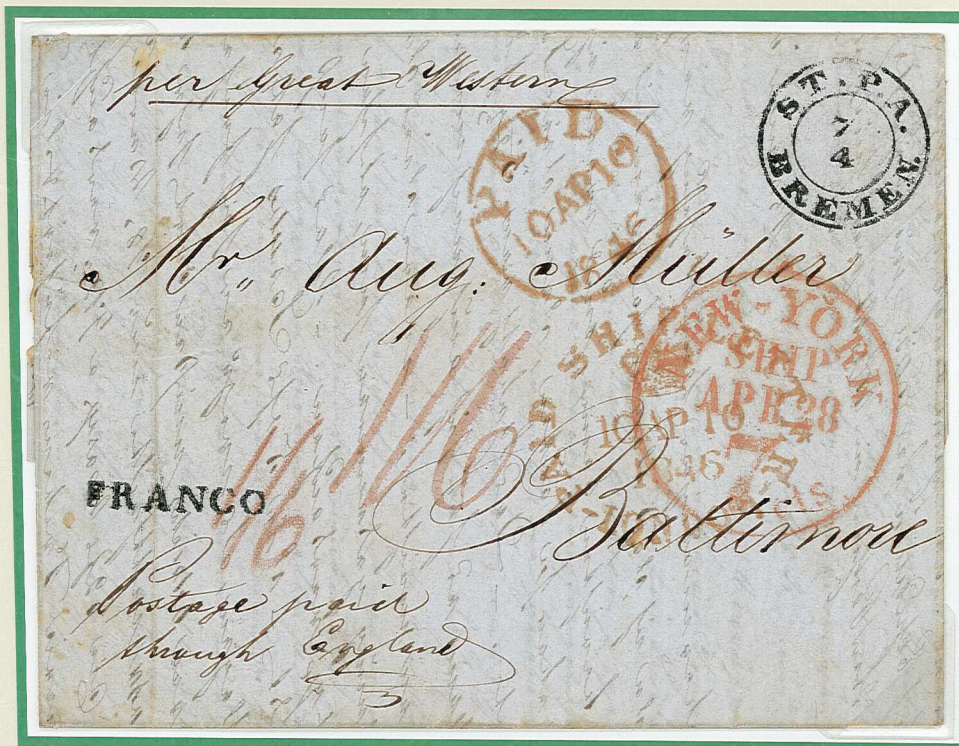 per Great Western
ST. P.A.
7
4
BREMEN.
PAID
10 AP 10
1846
Mr. Aug: Müller
SHIP
10 AP 10
1846
NEW-YORK
SHIP
APR 28
7
cts.
1/6
1/6
FRANCO
Baltimore
Postage paid
through England